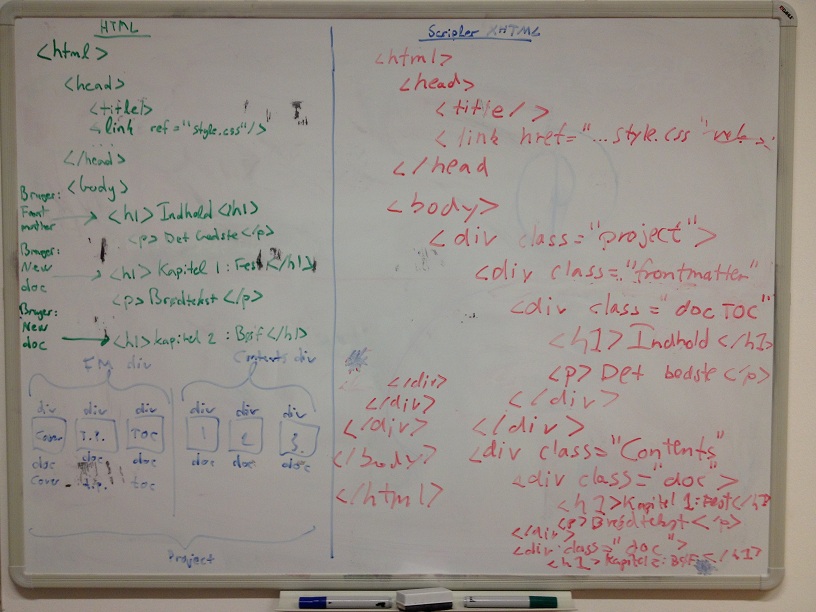 HTML
<html>
<head>
<title>
<link ref="style.css"/>
</head>
<body>
Bruger:
Front
matter
<h1> Indhold </h1>
<p> Det bedste </p>
Bruger:
New
doc
<h1> Kapitel 1 : Fest </h1>
<p> Brødtekst </p>
Bruger:
New
doc
<h1> kapitel 2 : Bøf </h1>
FM div
Contents div
div div div div div div
Cover T.P. TOC 1 2 3.
doc doc doc doc doc doc
Cover t.p. toc
Project
Scripler XHTML
<html>
<head>
<title/>
< link href="...style.css"
</head
<body>
<div class="project">
<div class="frontmatter"
<div class="doc TOC"
<h1> Indhold </h1>
<p> Det bedste </p>
</div>
</div>
<div class="Contents"
<div class="doc">
<h1> Kapitel 1: Fest </h1>
<p> Brødtekst </p>
</div>
<div class="doc">
<h1> Kapitel 2: Bøf </h1>
</div>
</div>
</div>
</body>
</html>